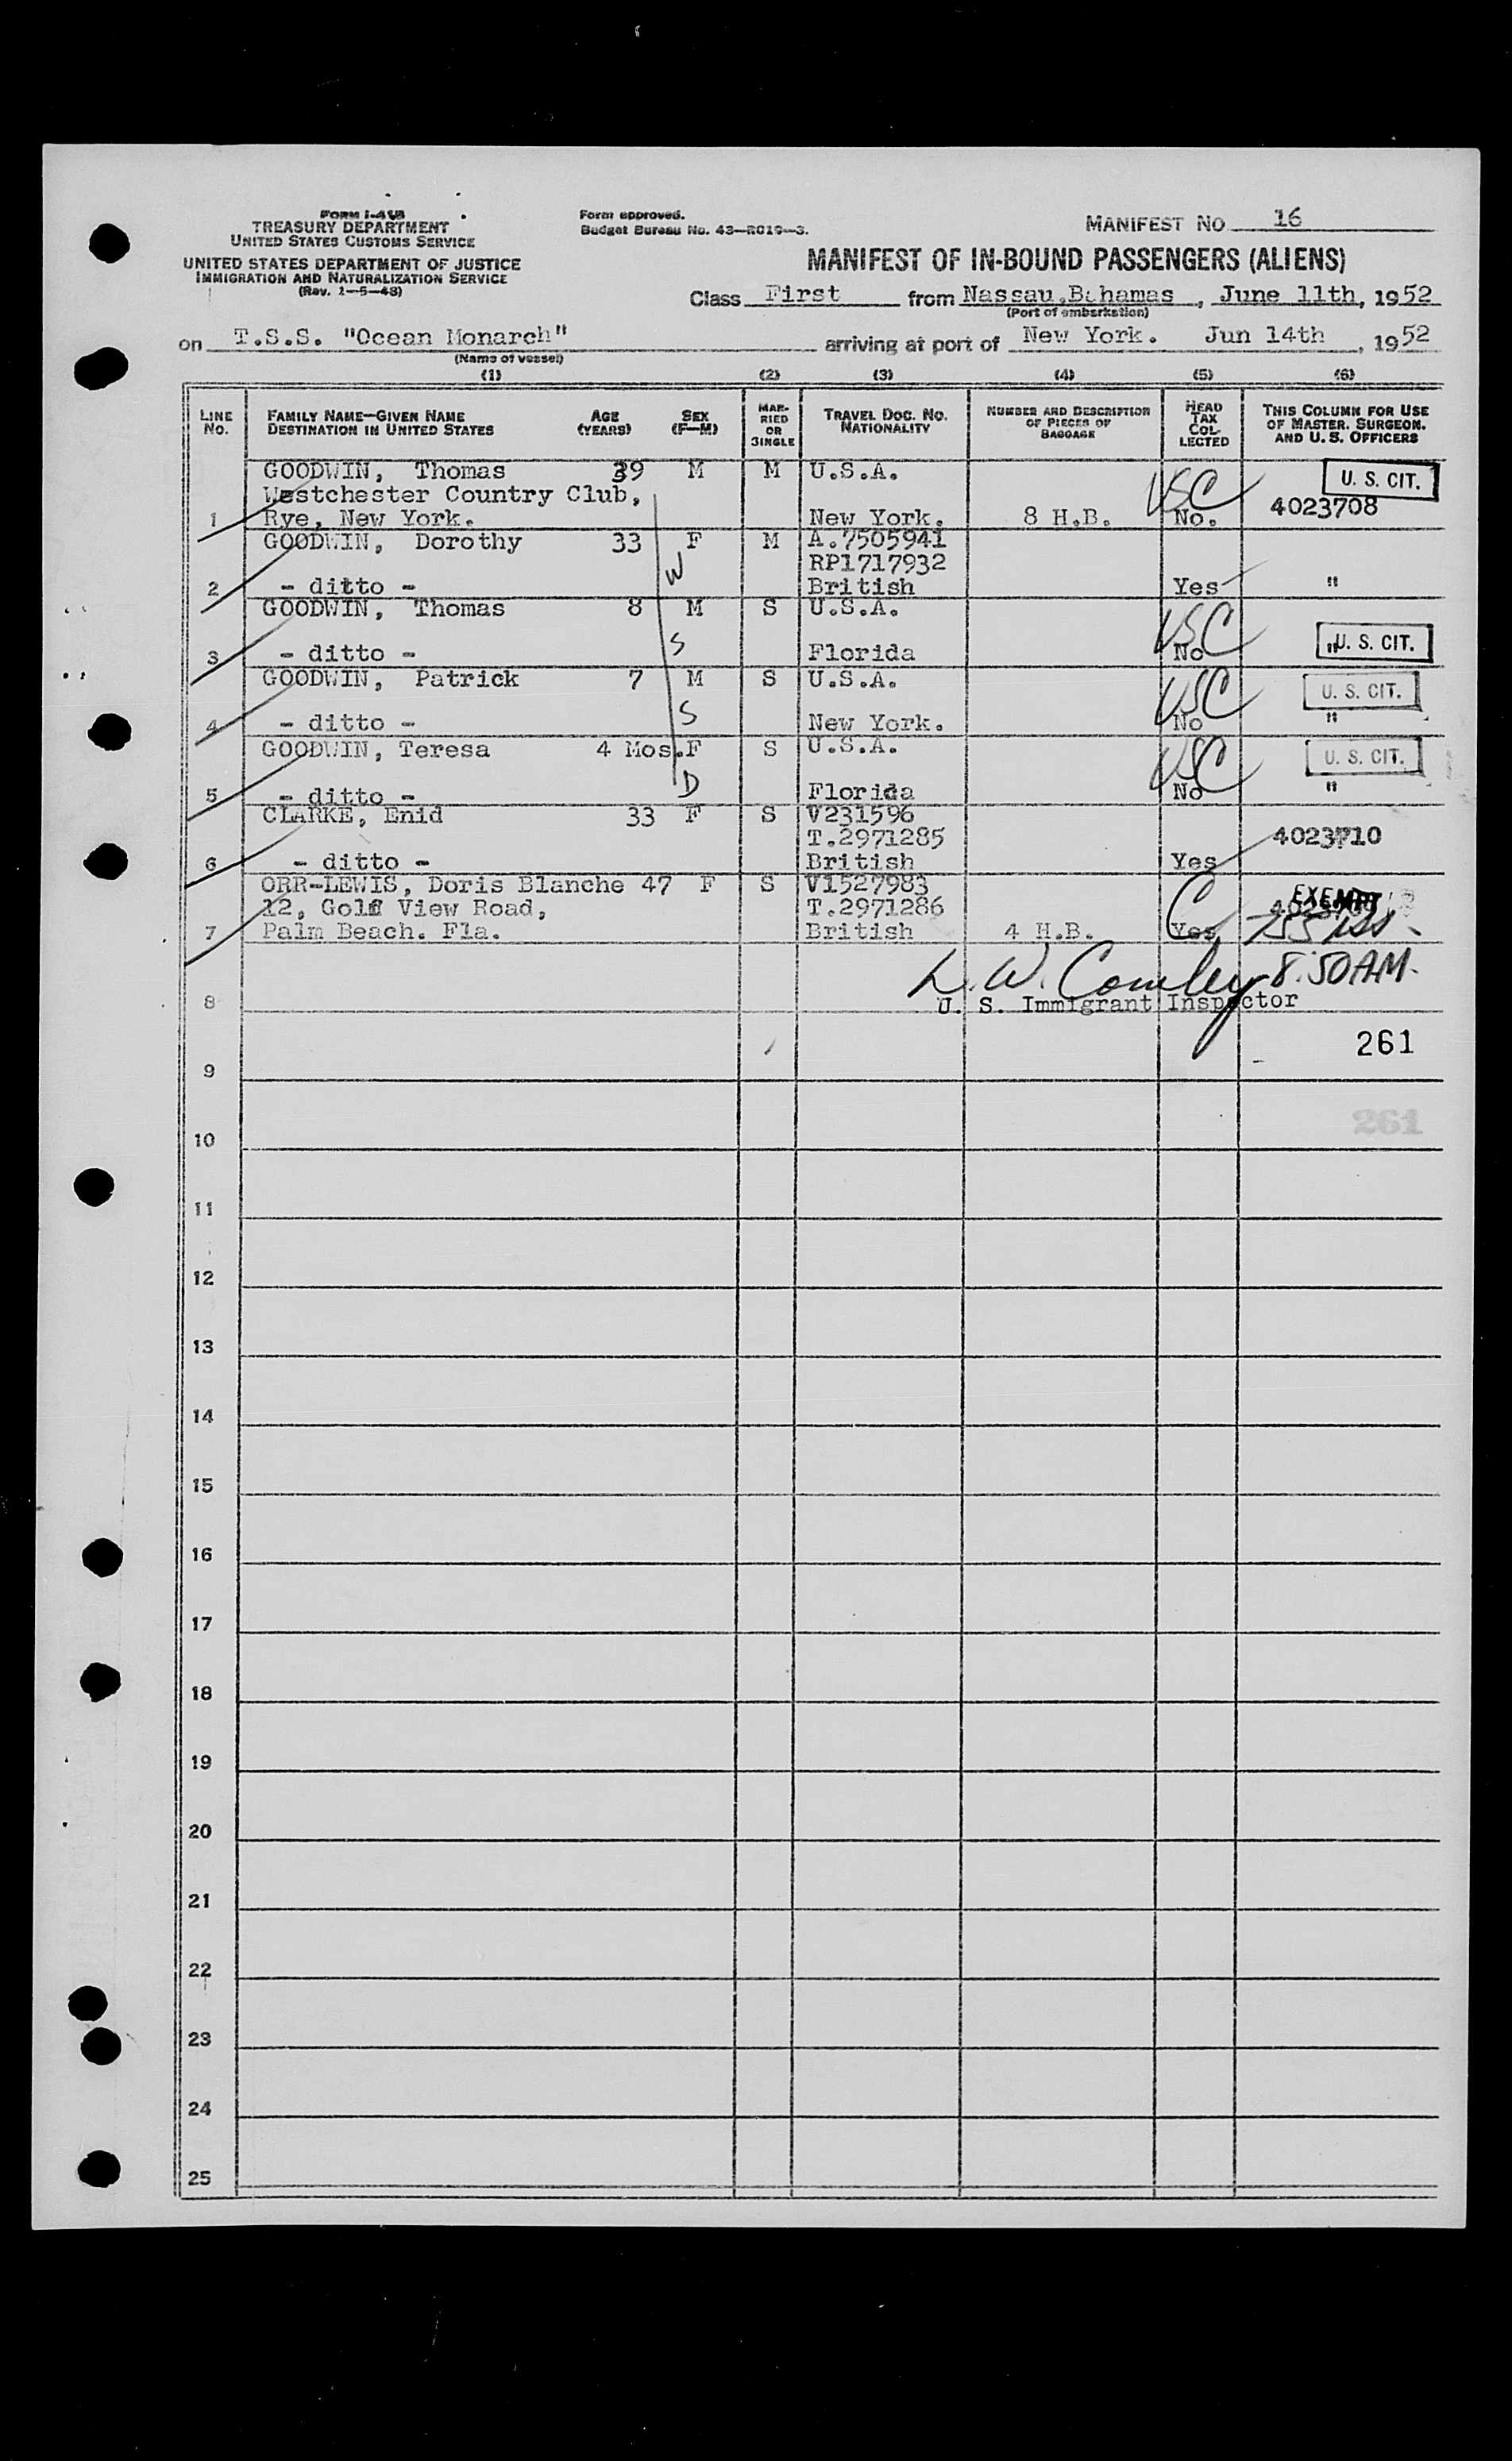 FORM I-418
TREASURY DEPARTMENT
UNITED STATES CUSTOMS SERVICE
UNITED STATES DEPARTMENT OF JUSTICE
IMMIGRATION AND NATURALIZATION SERVICE
(Rev. 1-5-48)
Form approved.
Budget Bureau No. 43-R019-3.
MANIFEST NO 16
MANIFEST OF IN-BOUND PASSENGERS (ALIENS)
Class First from Nassau, Bahamas, June 11th, 1952
(Port of embarkation)
on T.S.S. "Ocean Monarch" arriving at port of New York. Jun 14th, 1952
(Name of vessel)
(1) (2) (3) (4) (5) (6)
LINE NO. FAMILY NAME—GIVEN NAME DESTINATION IN UNITED STATES AGE (YEARS) SEX (F—M) MARRIED OR SINGLE TRAVEL DOC. NO. NATIONALITY NUMBER AND DESCRIPTION OF PIECES OF BAGGAGE HEAD TAX COLLECTED THIS COLUMN FOR USE OF MASTER. SURGEON. AND U. S. OFFICERS
GOODWIN, Thomas 39 M M U.S.A. USC U. S. CIT.
Westchester Country Club,
1 Rye, New York. New York. 8 H.B. No. 4023708
GOODWIN, Dorothy 33 F M A.7505941
W RP1717932
2 - ditto - British Yes "
GOODWIN, Thomas 8 M S U.S.A. USC
3 - ditto - S Florida No " U. S. CIT.
GOODWIN, Patrick 7 M S U.S.A. USC U. S. CIT.
4 - ditto - S New York. No "
GOODWIN, Teresa 4 Mos. F S U.S.A. USC U. S. CIT.
5 - ditto - D Florida No "
CLARKE, Enid 33 F S V231596
T.2971285 4023710
6 - ditto - British Yes
ORR-LEWIS, Doris Blanche 47 F S V1527983 C EXEMPT
12, Golf View Road, T.2971286
7 Palm Beach. Fla. British 4 H.B. Yes
L. W. Comley 8:50 AM.
8 U. S. Immigrant Inspector
261
9
261
10
11
12
13
14
15
16
17
18
19
20
21
22
23
24
25